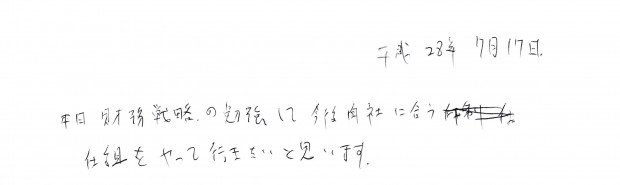 平成 28年 7月17日
本日 財務戦略の勉強して 今後自社に合う
仕組をやって行きたいと思います。